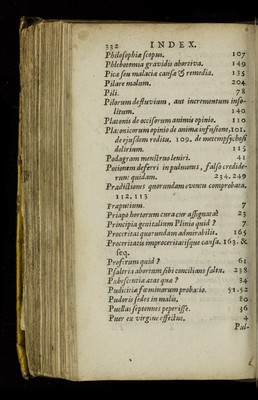 232 INDEX.
Philosophiæ scopus. 107
Phlebotomia gravidis abortiva. 149
Pica seu malacia causa & remedia. 135
Pilare malum. 204
Pili. 78
Pilorum defluvium, aut incrementum inso-
litum. 140
Platonis de occisorum animis opinio. 110
Platonicorum opinio de anima infusione, 101.
de ejusdem reditu. 109. de metempsychosi
delirium. 115
Podagram menstruo leniri. 41
Potionem deferri in pulmones, falso credide-
runt quidam. 234.249
Prædictiones quorundam eventu comprobata,
112.113
Præputium. 7
Priapo hortorum cura cur assignata? 23
Principia genitalium Plinio quid? 7
Proceritas quorundam admirabilis. 165
Proceritatis improceritatisque causa. 163. &
seq.
Profirum quid? 61
Psaleria abortum sibi concilians saltu. 238
Pubescentia ætas qua? 34
Pudicitia fæminarum probatio. 51.52
Pudoris sedes in malis. 80
Puellas septennes peperisse. 36
Puer ex virgine effectus. 4
Pul-